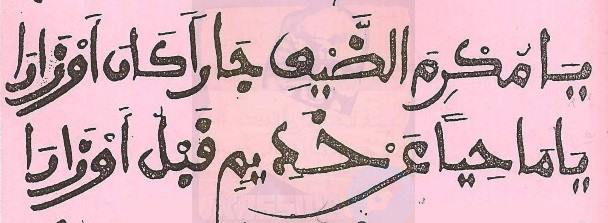 يَا مُكْرِمَ الضَّيْفِ جَارًا كَانَ أَوْ زَارَا
يَا مَاحِيًا عَنْ خَدِيمٍ قَبْلُ أَوْزَارَا